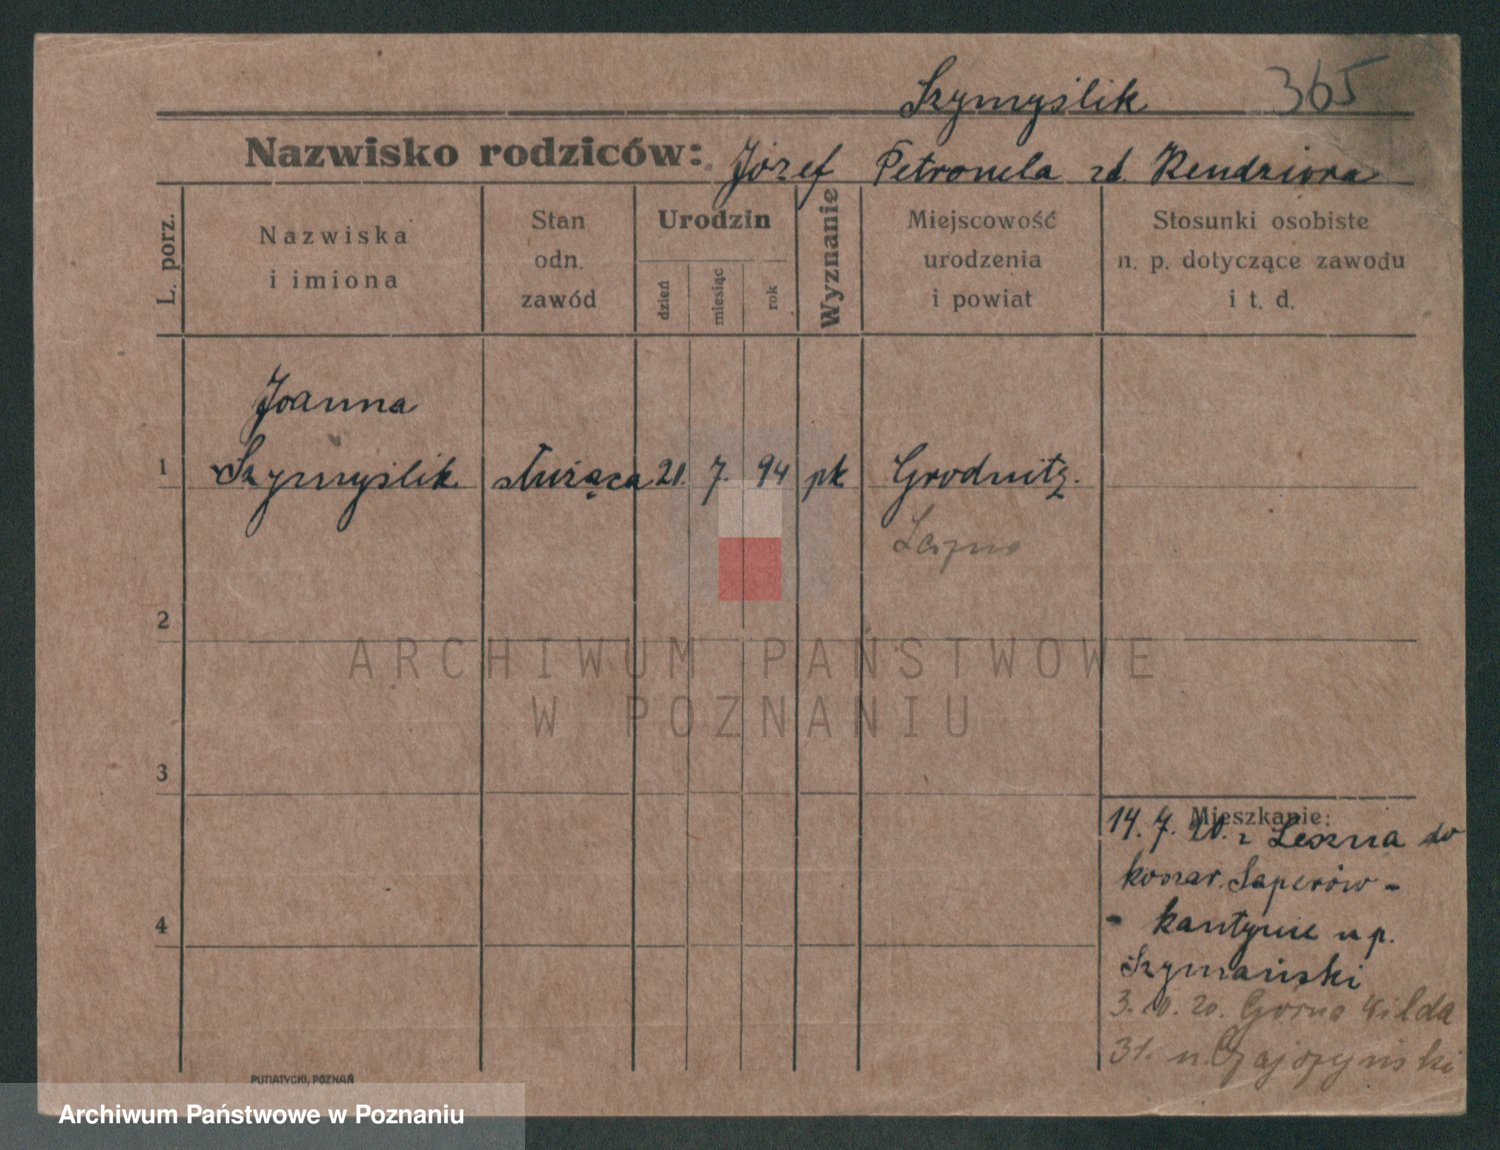 Szymyślik 365
Nazwisko rodziców: Józef Petronela zd. Rendziora
L. porz.
Nazwiska
i imiona
Stan
odn.
zawód
Urodzin
dzień miesiąc rok
Wyznanie
Miejscowość
urodzenia
i powiat
Stosunki osobiste
n. p. dotyczące zawodu
i t. d.
Joanna
1 Szymyślik służąca 21. 7. 94 pk Grodnitz.
Leszno
2
ARCHIWUM PAŃSTWOWE
W POZNANIU
3
Mieszkanie:
14. 7. 20. z Leszna do
koszar. Saperów -
4 - kantynie u p.
Szymański
3. 10. 20. Górna Wilda
31. u.
PUTIATYCKI, POZNAŃ
Archiwum Państwowe w Poznaniu